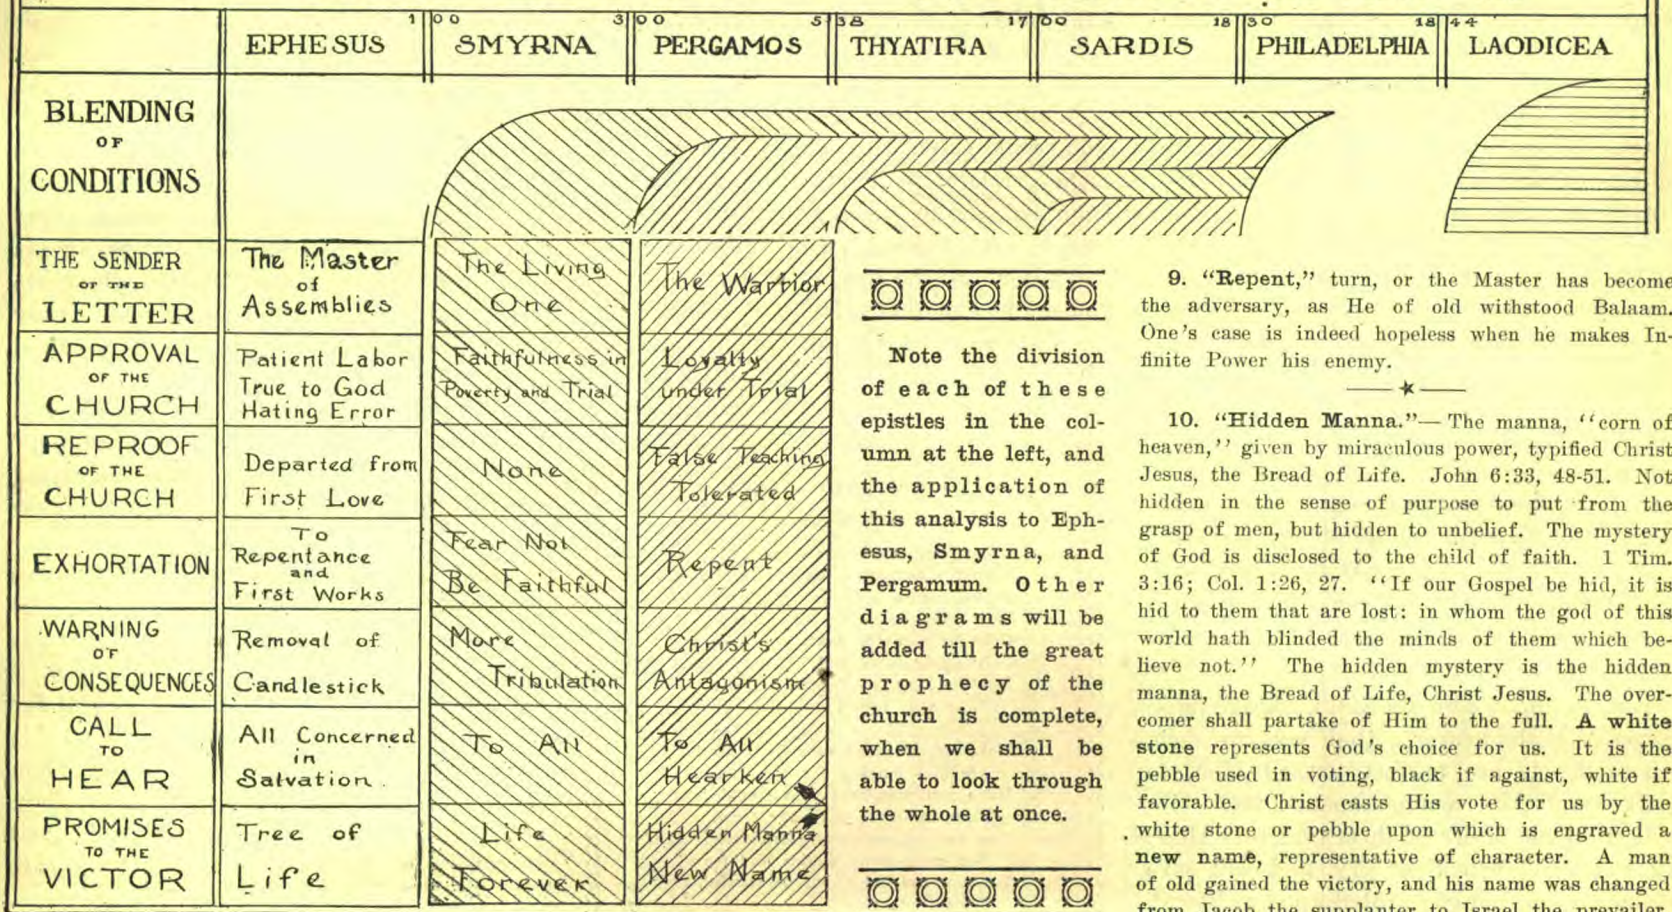 100 300 538 1700 1830 1844
EPHESUS SMYRNA PERGAMOS THYATIRA SARDIS PHILADELPHIA LAODICEA
BLENDING
OF
CONDITIONS
THE SENDER
OF THE
LETTER
The Master
of
Assemblies
The Living
One
The Warrior
APPROVAL
OF THE
CHURCH
Patient Labor
True to God
Hating Error
Faithfulness in
Poverty and Trial
Loyalty
under Trial
REPROOF
OF THE
CHURCH
Departed from
First Love
None
False Teaching
Tolerated
EXHORTATION
To
Repentance
and
First Works
Fear Not
Be Faithful
Repent
WARNING
OF
CONSEQUENCES
Removal of
Candlestick
More
Tribulation
Christ's
Antagonism
CALL
TO
HEAR
All Concerned
in
Salvation.
To All
To All
Hearken
PROMISES
TO THE
VICTOR
Tree of
Life
Life
Forever
Hidden Manna
New Name
Note the division
of each of these
epistles in the col-
umn at the left, and
the application of
this analysis to Eph-
esus, Smyrna, and
Pergamum. Other
diagrams will be
added till the great
prophecy of the
church is complete,
when we shall be
able to look through
the whole at once.
9. "Repent," turn, or the Master has become
the adversary, as He of old withstood Balaam.
One's case is indeed hopeless when he makes In-
finite Power his enemy.
10. "Hidden Manna."— The manna, "corn of
heaven," given by miraculous power, typified Christ
Jesus, the Bread of Life. John 6:33, 48-51. Not
hidden in the sense of purpose to put from the
grasp of men, but hidden to unbelief. The mystery
of God is disclosed to the child of faith. 1 Tim.
3:16; Col. 1:26, 27. "If our Gospel be hid, it is
hid to them that are lost: in whom the god of this
world hath blinded the minds of them which be-
lieve not." The hidden mystery is the hidden
manna, the Bread of Life, Christ Jesus. The over-
comer shall partake of Him to the full. A white
stone represents God's choice for us. It is the
pebble used in voting, black if against, white if
favorable. Christ casts His vote for us by the
white stone or pebble upon which is engraved a
new name, representative of character. A man
of old gained the victory, and his name was changed
from Jacob the supplanter to Israel the prevailer.